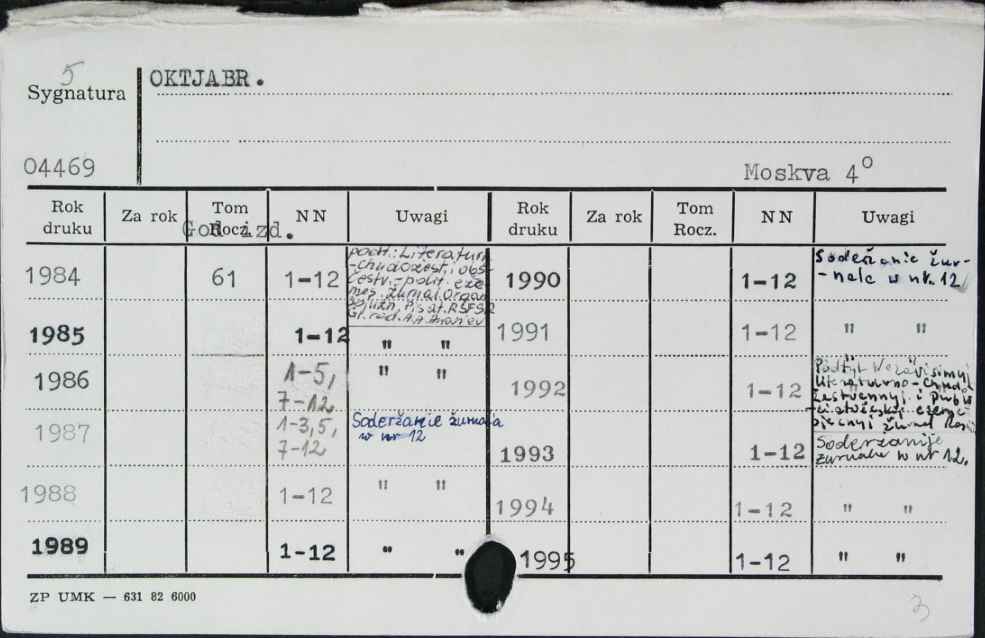 5
Sygnatura
OKTJABR.
04469
Moskva 4°
Rok druku Za rok Tom Rocz. NN Uwagi Rok druku Za rok Tom Rocz. NN Uwagi
God izd.
1984 61 1-12
podt.: Literaturn
-chudožest. i obš-
čestv.-polit. eže
mes. žurnal. Organ
Sojuzn. Pisat. RSFSR
Gl. red. A.A. Anan'ev
1990 1-12
Soderžanie žur-
-nala w nr. 12
1985 1-12 " "
1991 1-12 " "
1986 1-5,
7-12 " "
1992 1-12
Podtyt. Nezavisimyj
literaturno-chudo
žestvennyj i publi
1987 1-3,5,
7-12
Soderžanie žurnala
w nr 12
1993 1-12
Soderžanije
žurnala w nr 12.
1988 1-12 " "
1994 1-12 " "
1989 1-12 " "
1995 1-12 " "
ZP UMK — 631 82 6000
3